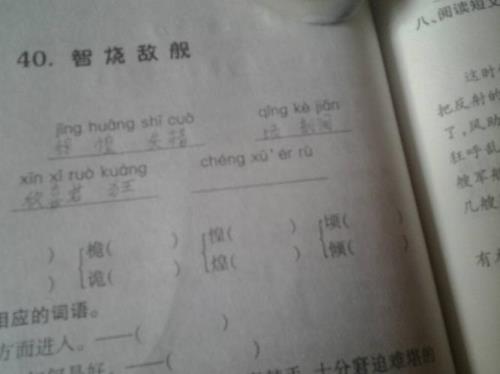 40. 智烧敌舰
八、阅读短文
jīng huāng shī cuò
qǐng kè jiān
惊 惶 失措
顷 刻间
xīn xǐ ruò kuáng
chéng xū' ér rù
欣喜若 狂
) 桅( ) 惶( ) 顷( )
) 诡( ) 煌( ) 倾( )
相应的词语。
方面进人。——( )
——( )
十分窘迫难堪的
这时
把反射的
了,风助
狂呼乱
艘军舰
几艘
有